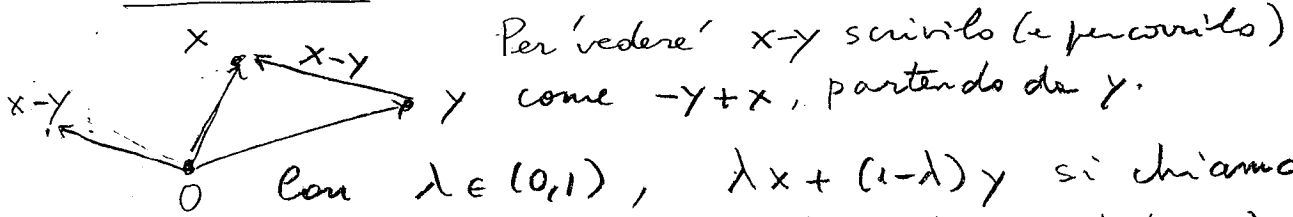 x
x-y
Per 'vedere' x-y scrivilo (e percorrilo)
x-y
y come -y+x, partendo da y.
0
Con λ ∈ (0,1), λx + (1-λ)y si chiama